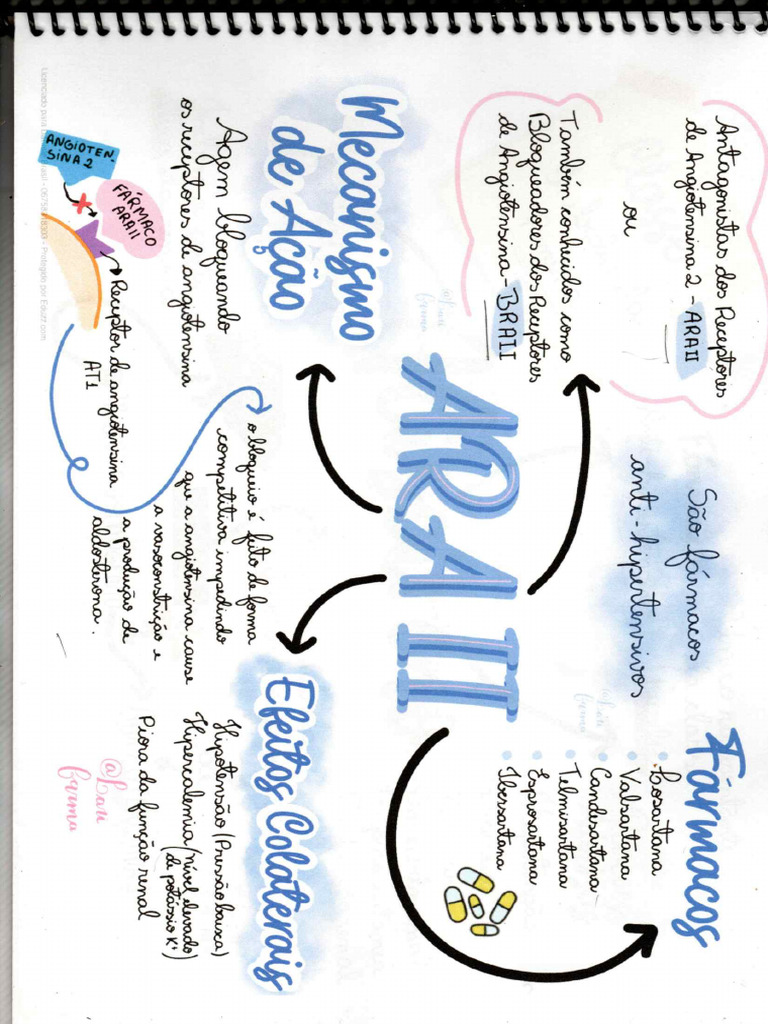 Antagonistas dos Receptores
de Angiotensina 2 - ARAII
ou
Também conhecidos como
Bloqueadores dos Receptores
de Angiotensina - BRAII
São fármacos
anti-hipertensivos
Fármacos
Losartana
Valsartana
Candesartana
Telmisartana
Eprosartana
Ibersartana
ARA II
Mecanismo
de Ação
Agem bloqueando
os receptores de angiotensina
ANGIOTEN-
SINA 2
FÁRMACO
ARAII
Receptor de angiotensina
AT1
o bloqueio é feito de forma
competitiva impedindo
que a angiotensina cause
a vasoconstrição e
a produção de
aldosterona.
Efeitos Colaterais
Hipotensão (Pressão baixa)
Hipercalemia (nível elevado
de potássio K+)
Piora da função renal
@Lari
farma
@Lari
farma
@Lari
farma
Licenciado para
- Protegido por Eduzz.com